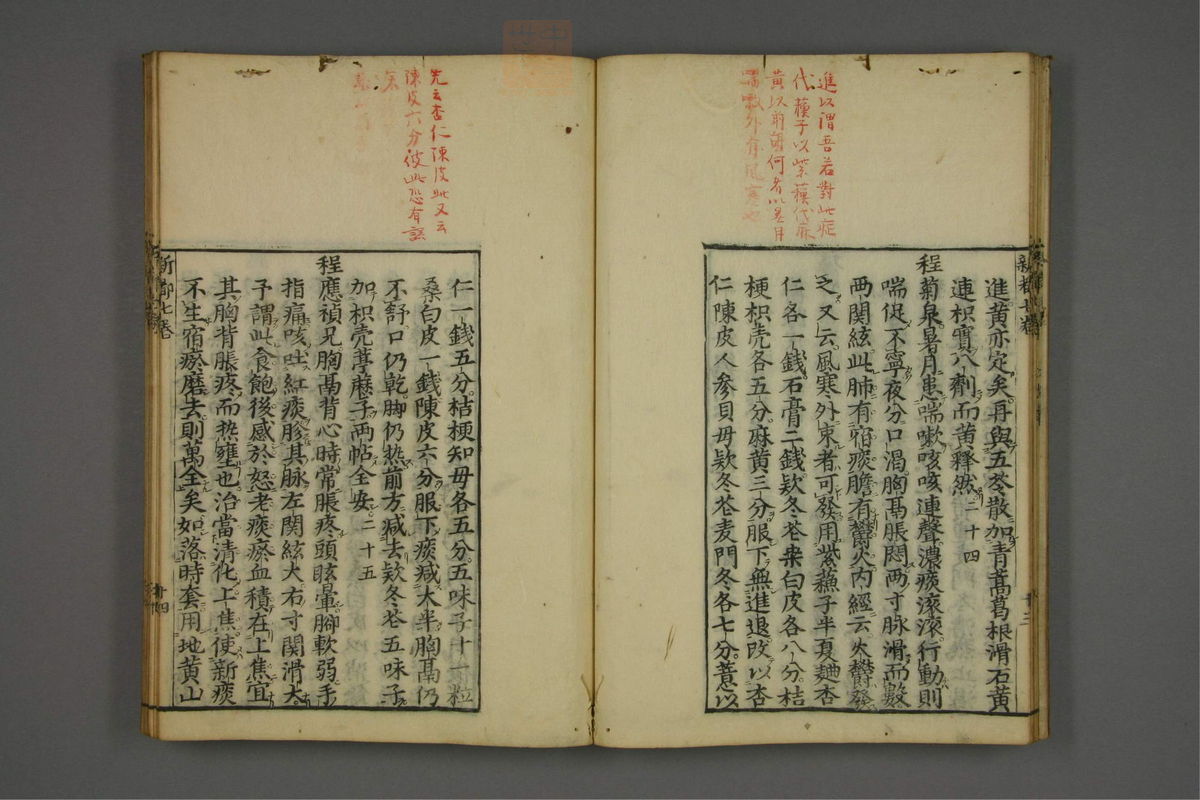 進以謂吾若對此症
代蘇子以紫蘇代麻
黄以前胡何者以暑月
喘嗽外有風寒也
進黄亦定矣再與五苓散加青蒿葛根滑石黄
連枳實八劑而黄釋然二十四
程菊泉暑月患喘嗽咳咳連聲濃痰滚滚行動則
喘促不寧夜分口渴胸膈脹悶两寸脉滑而數
两関絃此肺有宿痰膽有欝火内經云火欝發
之又云風寒外束者可發用紫蘇子半夏麯杏
仁各一錢石膏二錢欵冬花桒白皮各八分桔
梗枳壳各五分麻黄三分服下無進退改以杏
仁陳皮人參貝母欵冬花麦門冬各七分薏以
新都七卷
廿三
先云杏仁陳皮此又云
陳皮六分彼此恐有誤
仁一錢五分桔梗知母各五分五味子十一粒
桑白皮一錢陳皮六分服下痰减大半胸膈仍
不舒口仍乾脚仍热前方减去欵冬花五味子
加枳壳葶藶子两帖全安二十五
程應禎兄胸膈背心時常脹疼頭眩暈脚軟弱手
指痛咳吐紅痰胗其脉左関絃大右寸関滑大
予謂此食飽後感於怒老痰瘀血積在上焦宜
其胸背脹疼而热壅也治當清化上焦使新痰
不生宿瘀磨去則萬全矣如落時套用地黄山
新都七卷
廿四